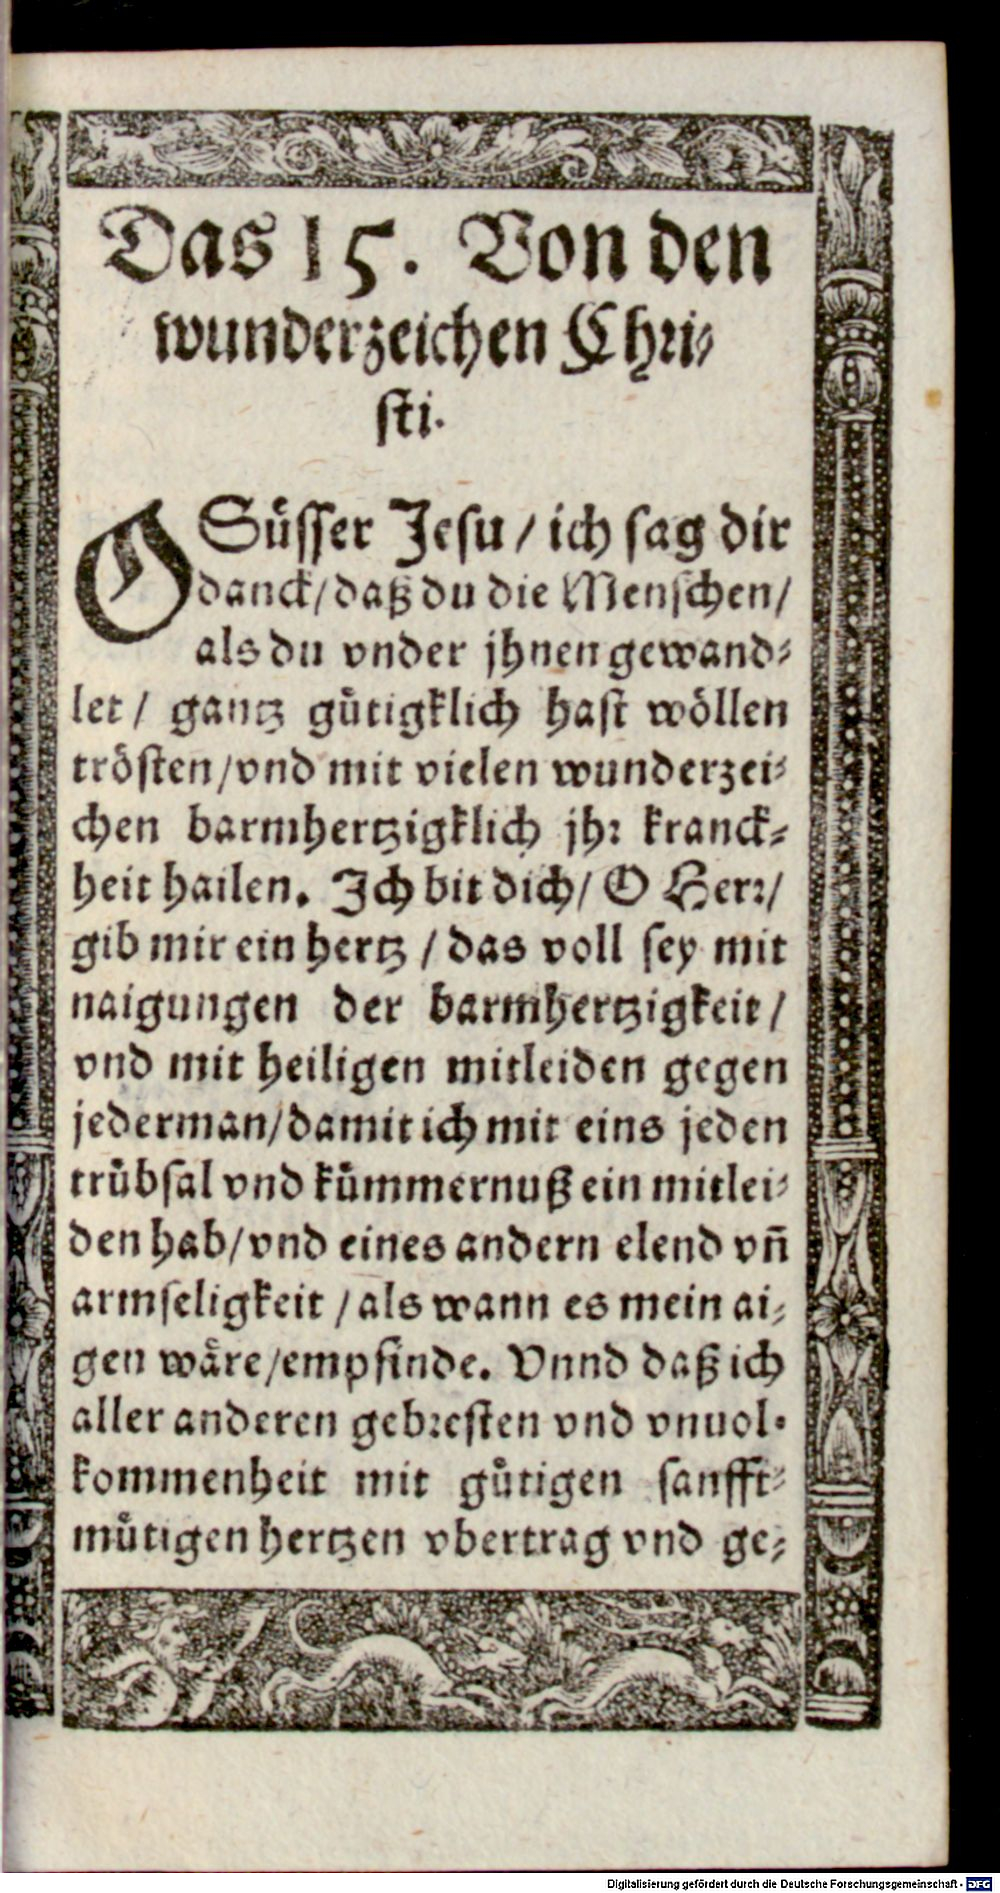 Das 15. Von den
wunderzeichen Chri⸗
sti.
O Süsser Jesu / ich sag dir
danck / daß du die Menschen /
als du vnder jhnen gewand⸗
let / gantz gütigklich hast wöllen
trösten / vnd mit vielen wunderzei⸗
chen barmhertzigklich jhr kranck⸗
heit hailen. Ich bit dich / O Herr /
gib mir ein hertz / das voll sey mit
naigungen der barmhertzigkeit /
vnd mit heiligen mitleiden gegen
jederman / damit ich mit eins jeden
trübsal vnd kümmernuß ein mitlei⸗
den hab / vnd eines andern elend vñ
armseligkeit / als wann es mein ai⸗
gen wäre / empfinde. Vnnd daß ich
aller anderen gebresten vnd vnuol⸗
kommenheit mit gütigen sanfft⸗
mütigen hertzen vbertrag vnd ge⸗
Digitalisierung gefördert durch die Deutsche Forschungsgemeinschaft - DFG